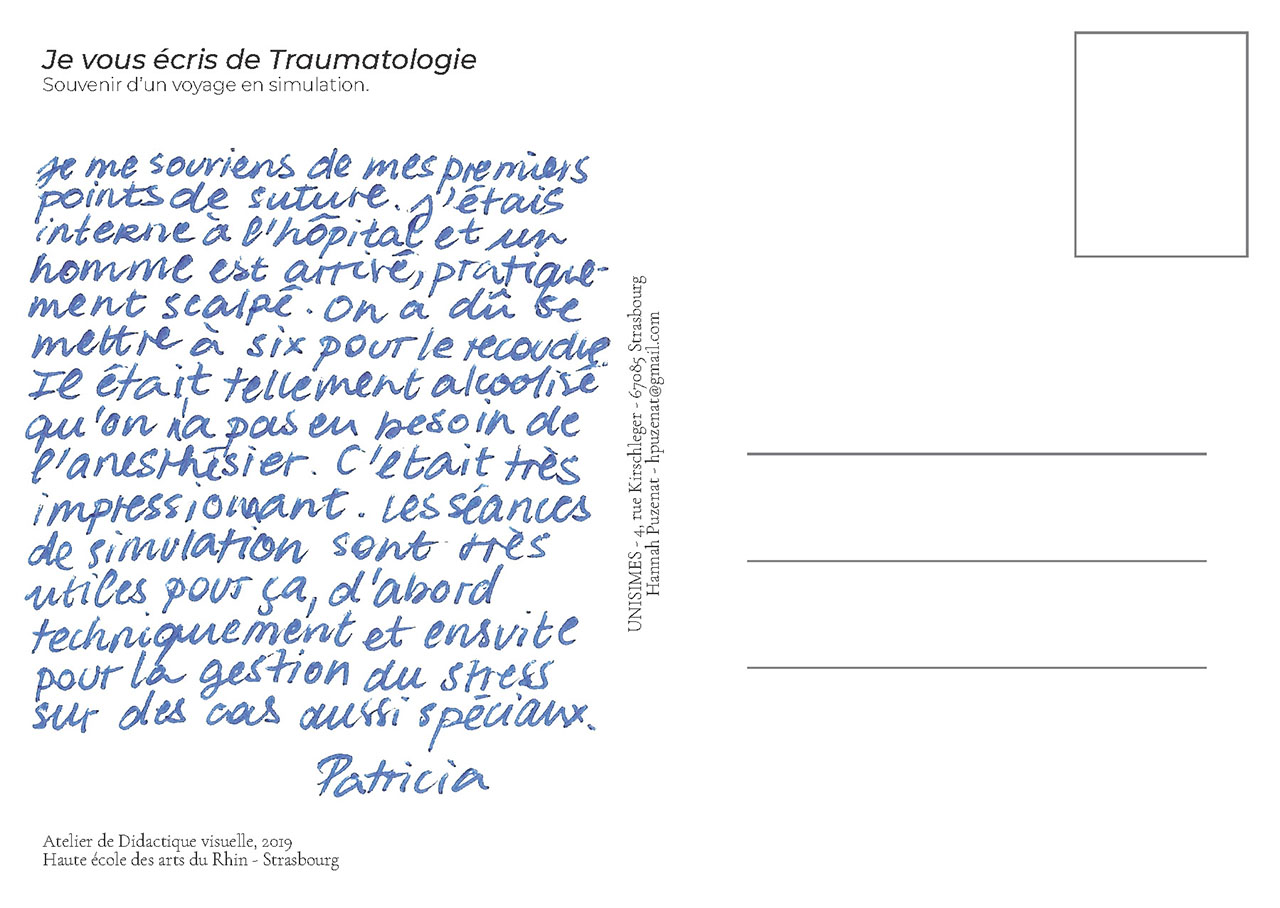 Je vous écris de Traumatologie
Souvenir d'un voyage en simulation.
Je me souviens de mes premiers
points de suture. J'étais
interne à l'hôpital et un
homme est arrivé, pratique-
ment scalpé. On a dû se
mettre à six pour le recoudre
Il était tellement alcoolisé
qu'on n'a pas eu besoin de
l'anesthésier. C'était très
impressionnant. Les séances
de simulation sont très
utiles pour ça, d'abord
techniquement et ensuite
pour la gestion du stress
sur des cas aussi spéciaux.
Patricia
Atelier de Didactique visuelle, 2019
Haute école des arts du Rhin - Strasbourg
UNISIMES - 4, rue Kirschleger - 67085 Strasbourg
Hannah Puzenat - hpuzenat@gmail.com